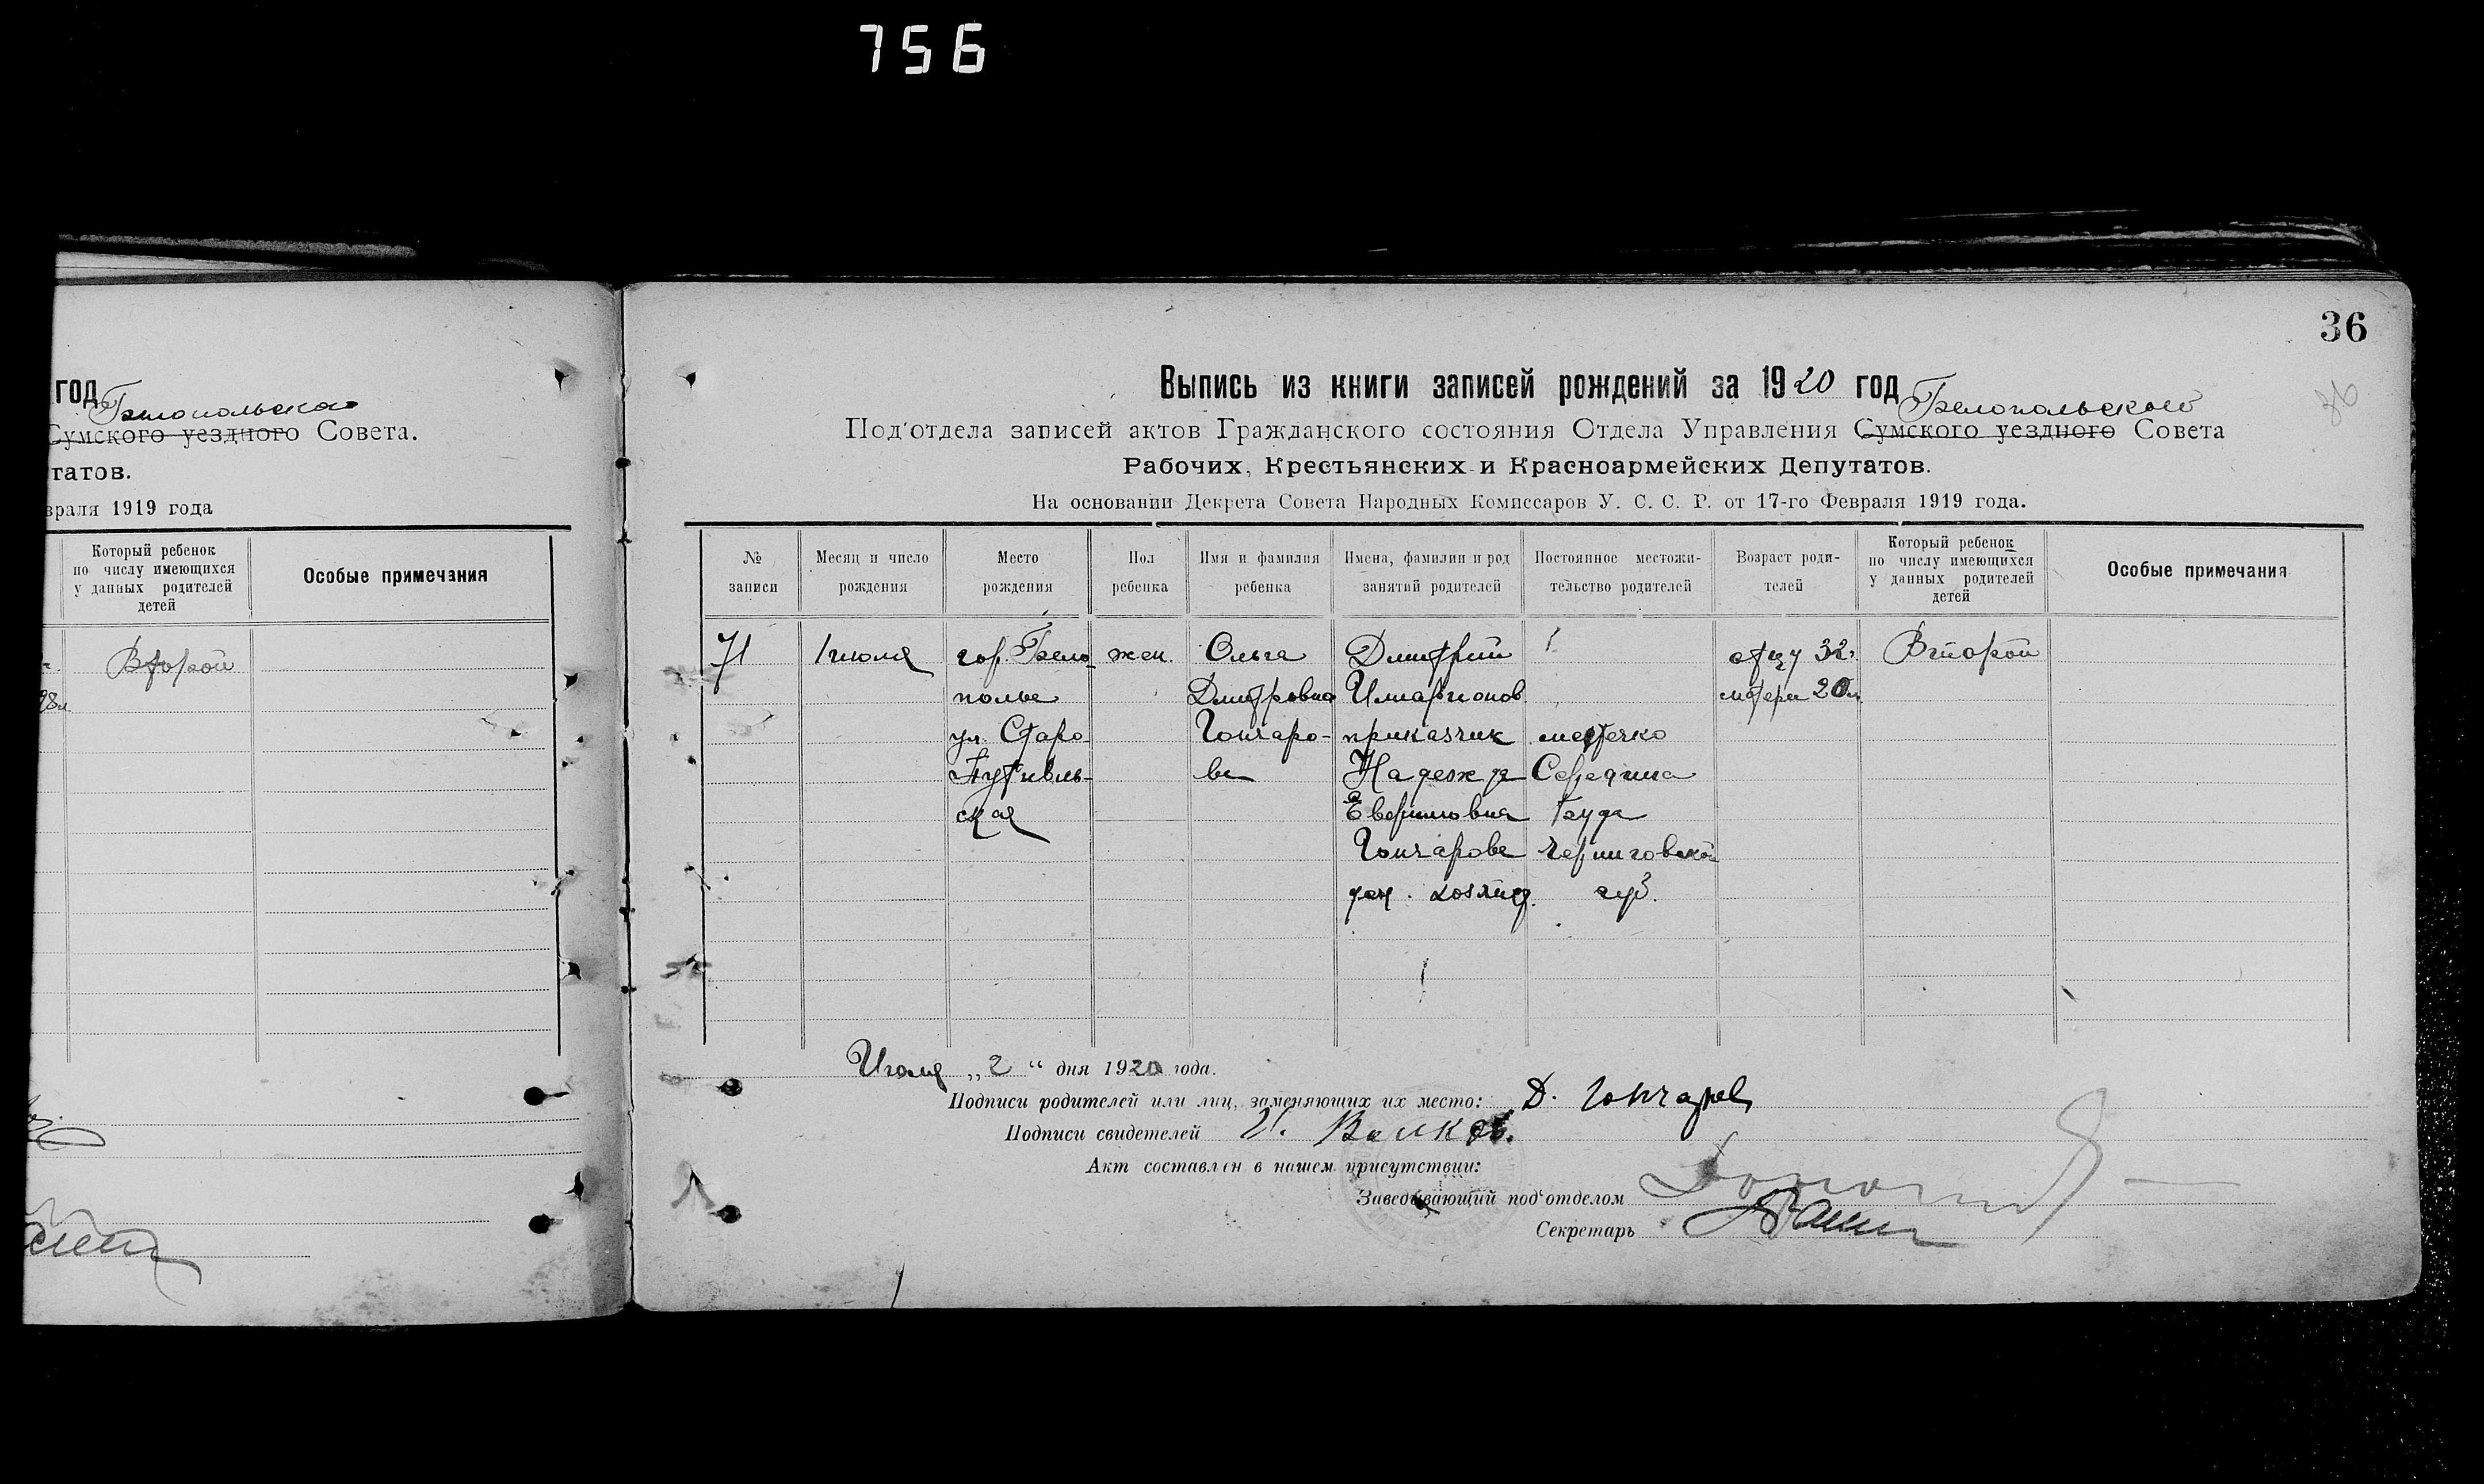 756
год Белопольского
Сумского уездного Совета.
татов.
враля 1919 года
Который ребенок по числу имеющихся у данных родителей детей
Особые примечания
Второй
36
36
Выпись из книги записей рождений за 1920 год
Белопольского
Под'отдела записей актов Гражданского состояния Отдела Управления Сумского уездного Совета
Рабочих, Крестьянских и Красноармейских Депутатов.
На основании Декрета Совета Народных Комиссаров У. С. С. Р. от 17-го Февраля 1919 года.
№ записи
Месяц и число рождения
Место рождения
Пол ребенка
Имя и фамилия ребенка
Имена, фамилии и род занятий родителей
Постоянное местожительство родителей
Возраст родителей
Который ребенок по числу имеющихся у данных родителей детей
Особые примечания
71
1 июля
гор. Бело-
полье
ул. Старо-
Путивль-
ская
жен.
Ольга
Дмитровна
Гончаро-
ва
Дмитрий
Иларионов
приказчик
Надежда
Гончарова
дом. хозяйка
местечко
Середина
Буда
Черниговской
губ.
отцу 32.
матери 20л.
Второй
Июля „2“ дня 1920 года.
Подписи родителей или лиц, заменяющих их место: Д. Гончаров
Подписи свидетелей
Акт составлен в нашем присутствии:
Заведывающий под'отделом
Секретарь